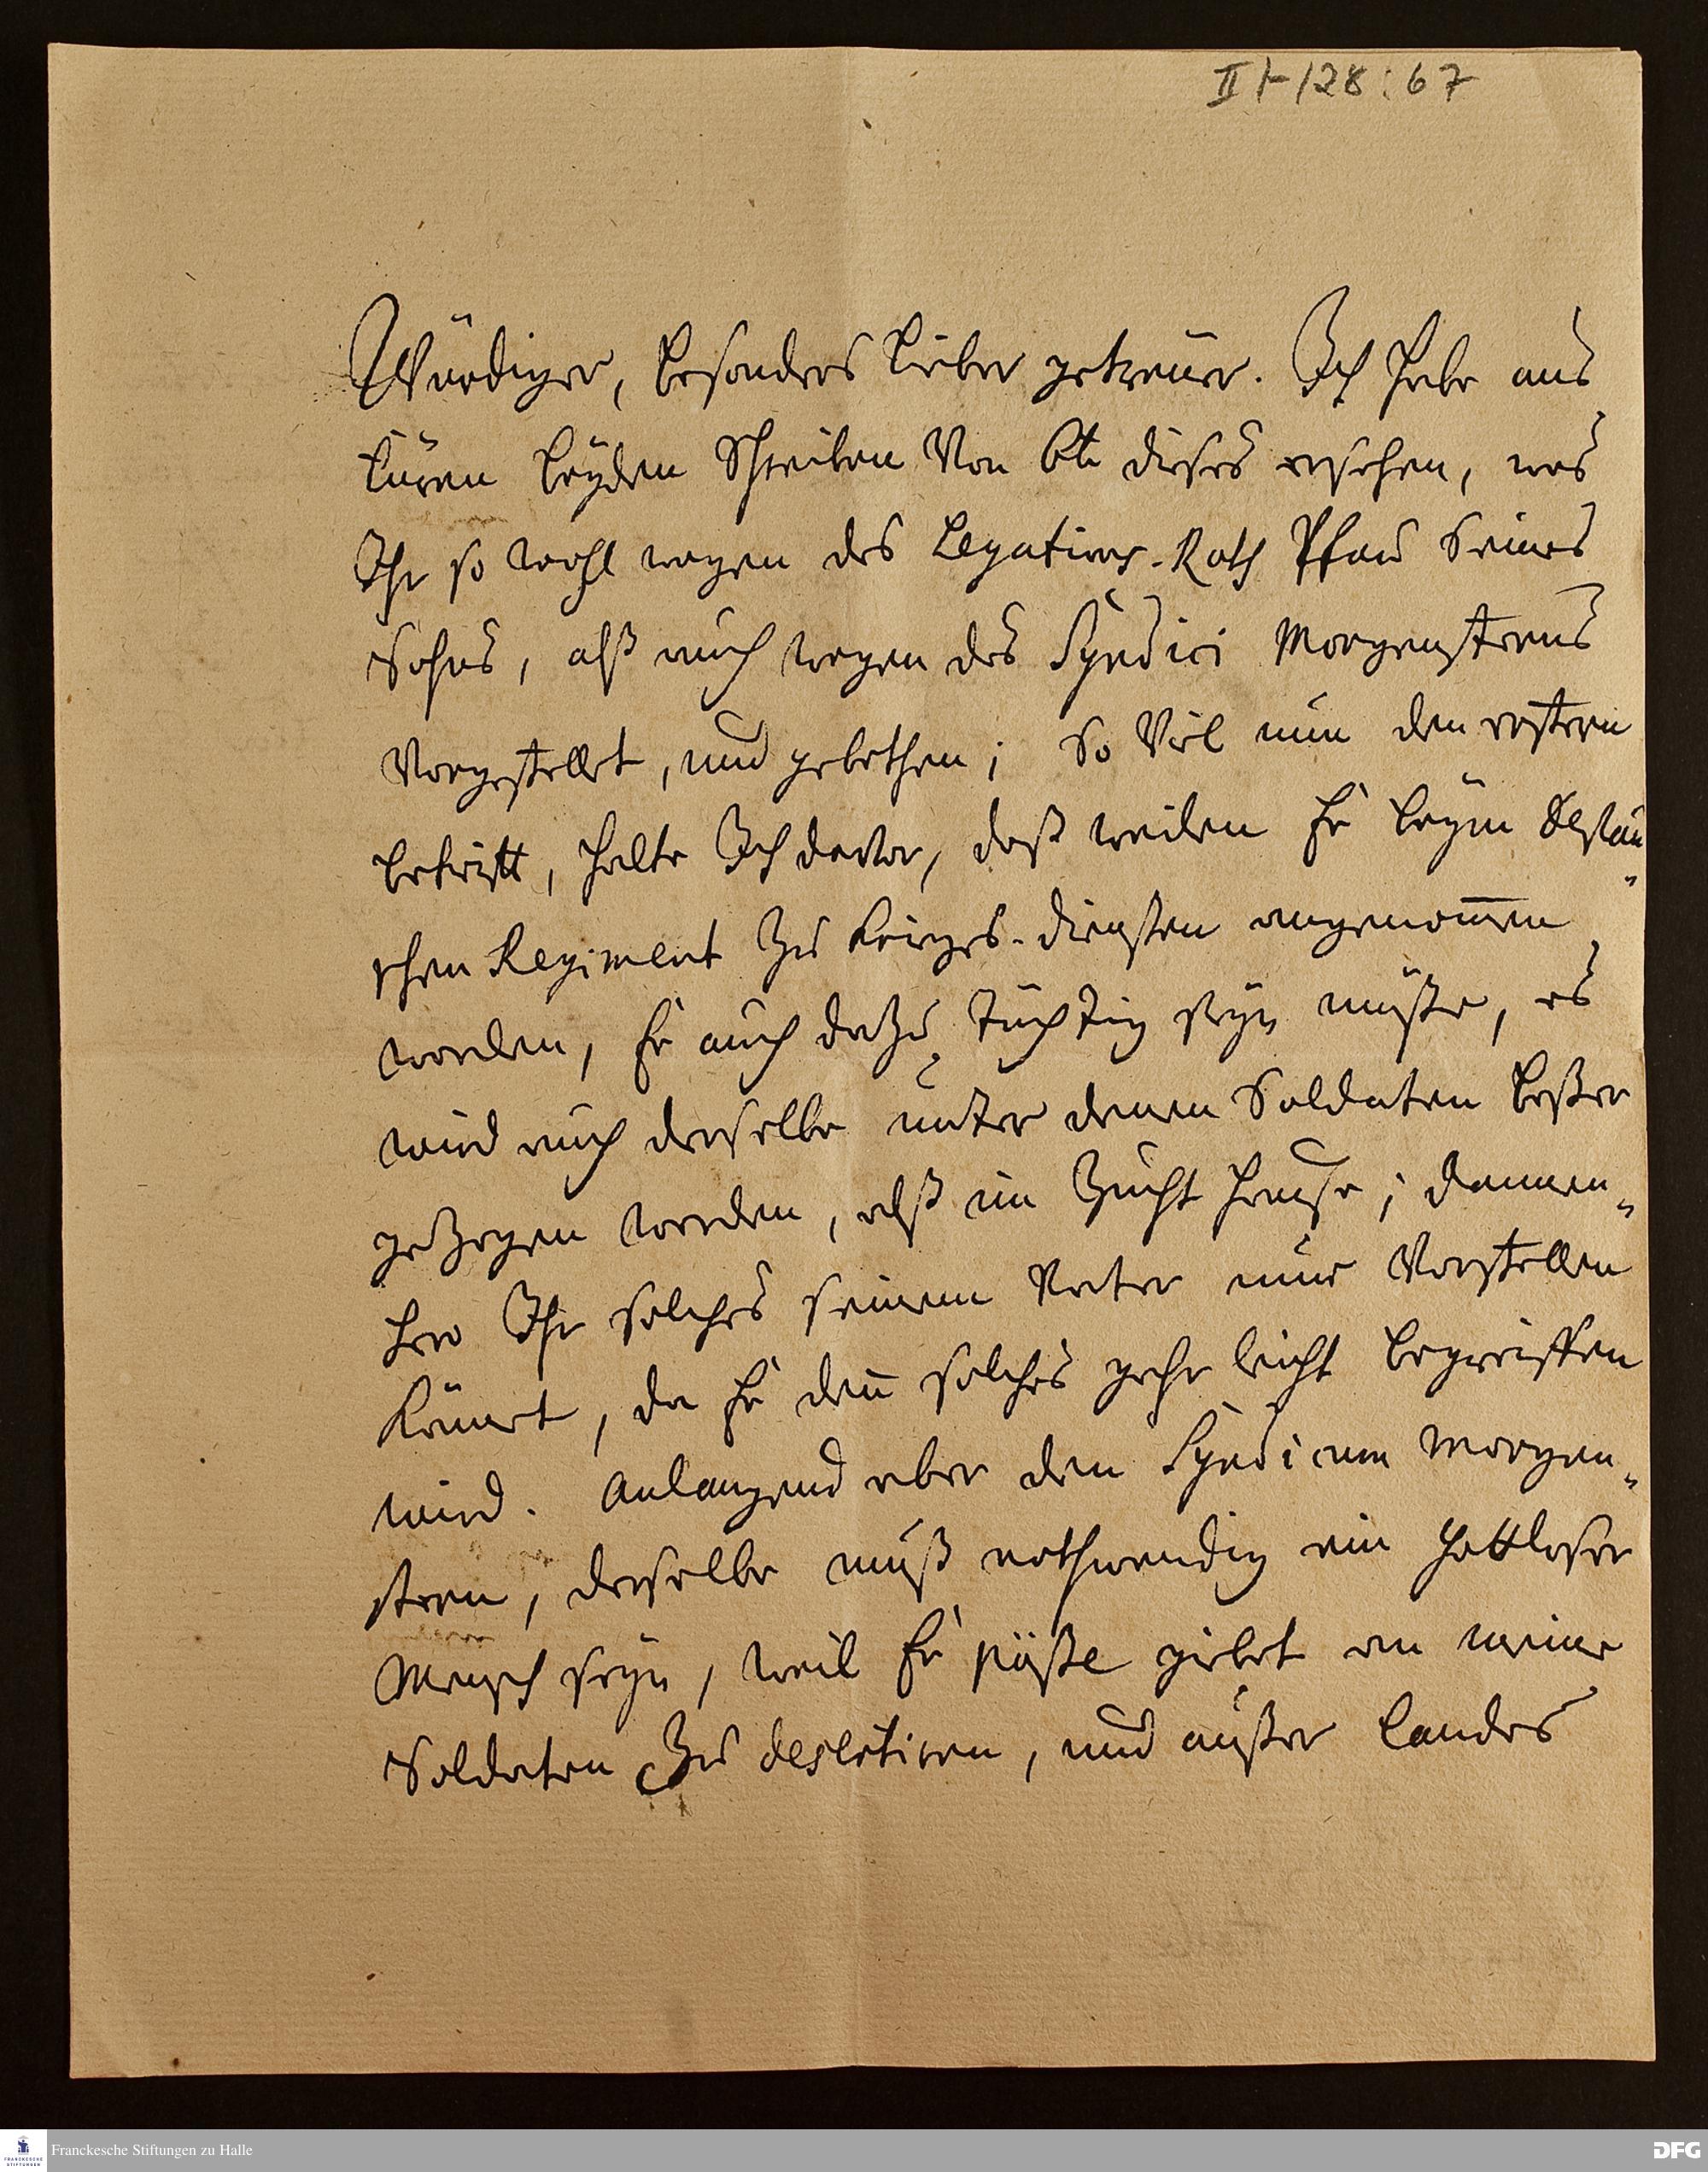 II /-/28:67
Würdiger, besonders lieber getreuer. Ich habe aus
Euren beyden Schreiben von 6t. dieses ersehen, was
Ihr so wohl wegen des Legations-Rath Pfau seines
Sohns, alß auch wegen des Syndici Morgensterns
vorgestellet, und gebethen; So viel nun den erstern
betrifft, halte Ich davor, daß weilen Er beym
schen Regiment zu Krieges-diensten angenommen
worden, Er auch dazu tüchtig seyn müße, es
wird auch derselbe unter denen Soldaten beßer
gezogen werden, alß im Zucht Hause; dannen„
hero Ihr solches seinem Vater nur vorstellen
könnet, da Er denn solches gahr leicht begreiffen
wird. Anlangend aber den Syndicum Morgen„
stern, derselbe muß nothwendig ein Gottloser
Mensch seyn, weil Er päße giebet an meine
Soldaten zu desertiren, und außer Landes
Franckesche Stiftungen zu Halle
DFG